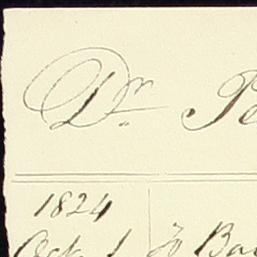 Dr. Pe
1824
Oct. 1 To Ba